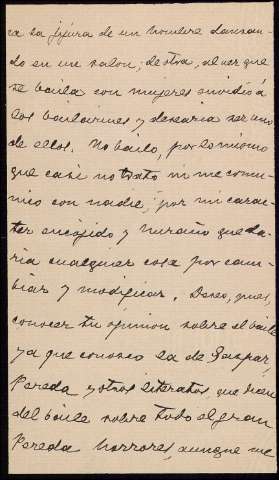 ca la figura de un hombre danzan-
do en un salon; de otra, al ver que
se baila con mujeres envidio á
los bailarines y desearia ser uno
de ellos. No bailo, por lo mismo
que casi no trato ni me comu-
nico con nadie, por mi carac-
ter encojido y huraño que da-
ria cualquier cosa por cam-
biar y modificar. Deseo, pues,
conocer tu opinion sobre el baile
ya que conozco la de Gaspar,
Pereda y otros literatos, que dicen
del baile sobre todo el gran
Pereda horrores, aunque me